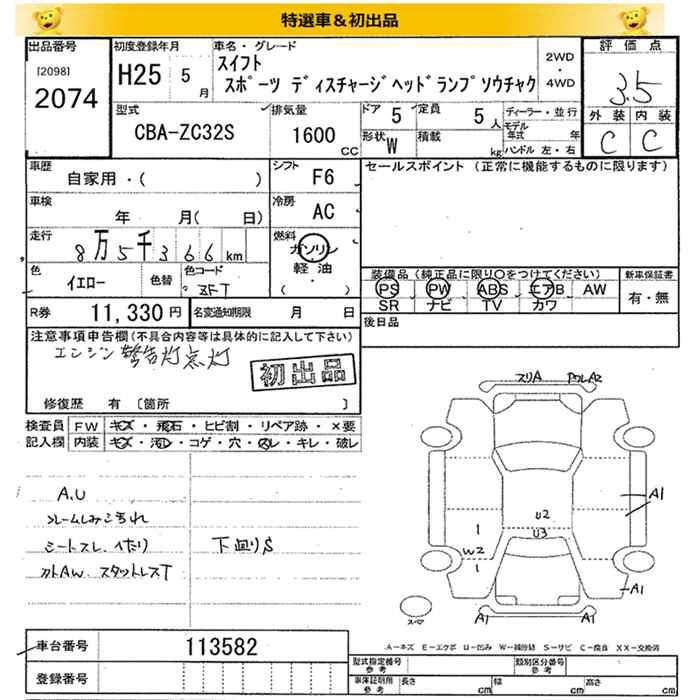 特選車＆初出品
出品番号 初度登録年月 車名・グレード 2WD・4WD 評価点
[2098] 2074 H25 5月 スイフト
スポーツ ディスチャージヘッドランプソウチャク 3.5
型式 排気量 ドア 5 定員 5人 ディーラー・並行 外装 内装
CBA-ZC32S 1600 CC 形状 W 積載 kg モデル年式 年 C C
ハンドル 左・右
車歴 シフト F6 セールスポイント (正常に機能するものに限ります)
自家用・( )
車検 年 月( 日) 冷房 AC
走行 8万5千366km 燃料 ガソリン
軽油・( )
色 イエロー 色替 色コード ZFT
装備品 (純正品に限り○をつけてください) 新車保証書
PS PW ABS エアB AW 有・無
SR ナビ TV カワ
R券 11,330円 名変通知期限 月 日
後日品
注意事項申告欄(不具合内容等は具体的に記入して下さい)
エンジン警告灯点灯
初出品
修復歴 有 〔箇所 〕
検査員 FW キズ・飛石・ヒビ割・リペア跡・×要
記入欄 内装 キズ・汚レ・コゲ・穴・スレ・キレ・破レ
A.U
シートスレ、へたり 下廻りS
スタットレスT
スリA
A2
A1
U2
U3
1
W2
1
A1
スペア A1 A1
A－キズ E－エクボ U－凹み W－補修跡 S－サビ C－腐食 XX－交換済
車台番号 113582
登録番号
型式指定番号 参考 類別区分番号 参考
車庫証明用 参考 長さ cm 幅 cm 高さ cm